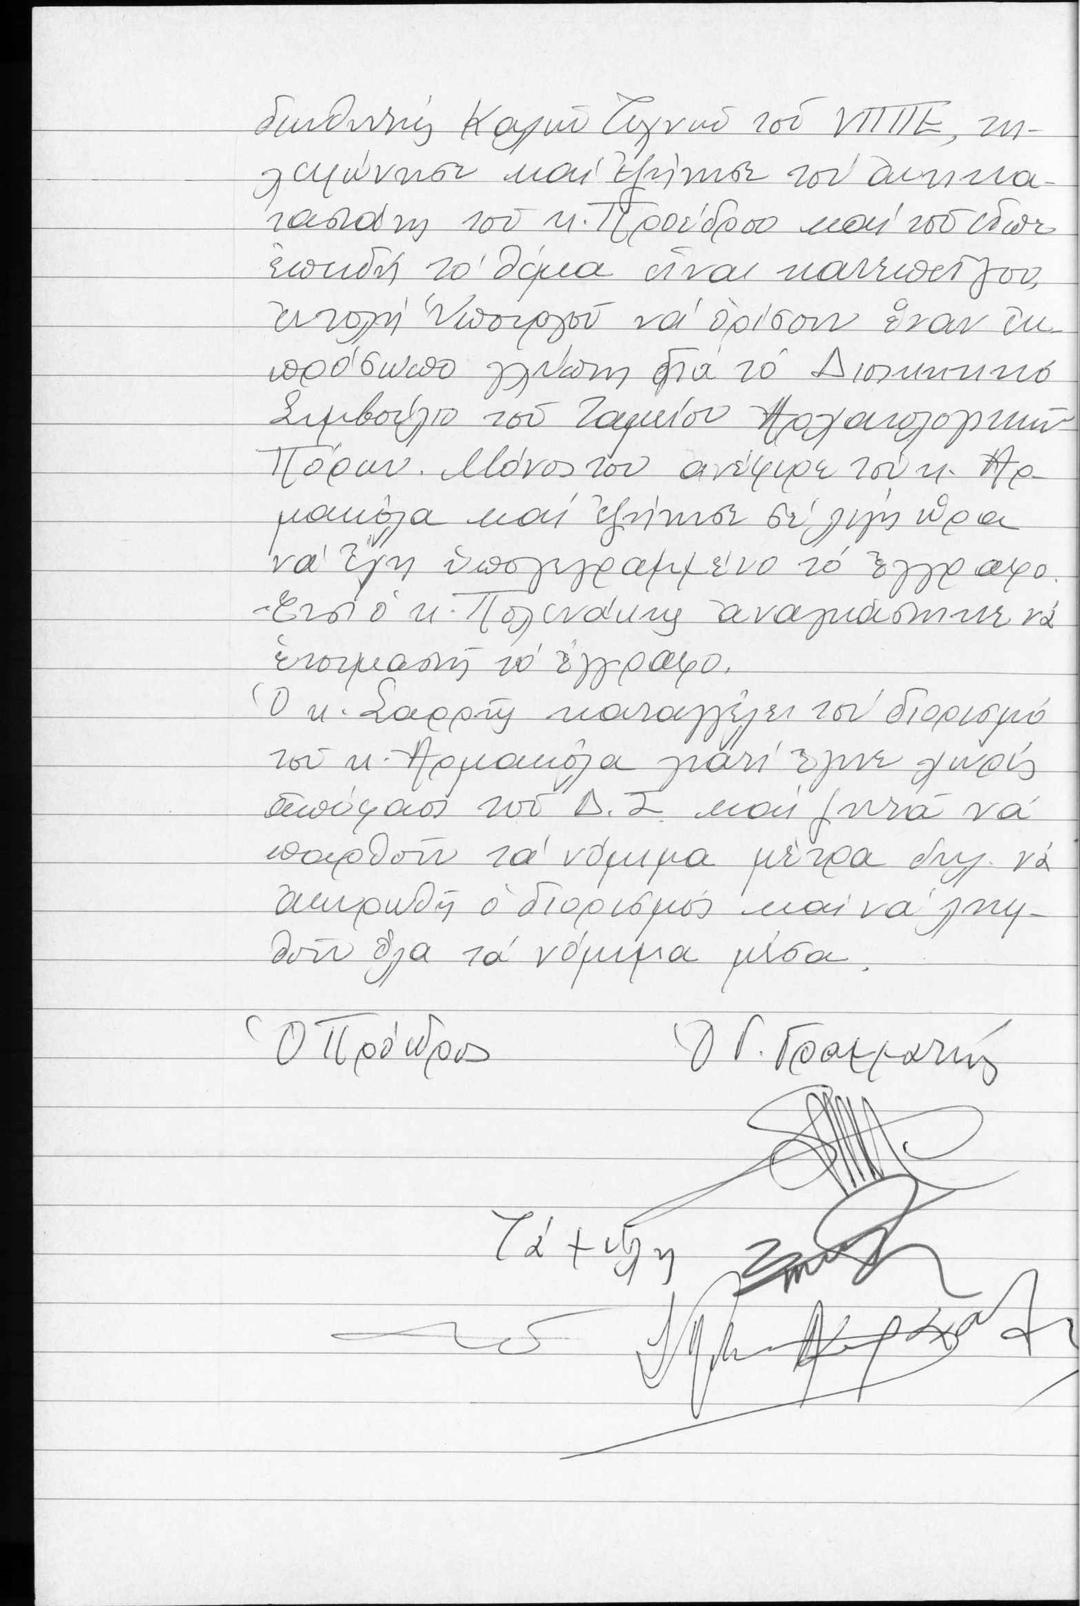 διευθυντής Καλῶν Τεχνῶν τοῦ ΥΠΠΕ, τη-
λεφώνησε καί ἐζήτησε τόν ἀντικα-
ταστάτη τοῦ κ. Προέδρου καί τοῦ εἶπε
ἐπειδή τό θέμα εἶναι κατεπεῖγον,
ἐντολή Ὑπουργοῦ νά ὁρίσουν ἕναν ἐκ-
πρόσωπο γλύπτη γιά τό Διοικητικό
Συμβούλιο τοῦ Ταμείου Ἀρχαιολογικῶν
Πόρων. Μόνος του ἀνέφερε τόν κ. Ἀρ-
μακόλα καί ἐζήτησε σέ λίγη ὥρα
νά ἔχη ὑπογεγραμμένο τό ἔγγραφο.
Ἔτσι ὁ κ. Πολενάκης ἀναγκάστηκε νά
ἑτοιμάση τό ἔγγραφο.
Ὁ κ. Σαρρῆς καταγγέλει τόν διορισμό
τοῦ κ. Ἀρμακόλα γιατί ἔγινε χωρίς
ἀπόφαση τοῦ Δ.Σ. καί ζητᾶ νά
παρθοῦν τά νόμιμα μέτρα δηλ. νά
ἀκυρωθῆ ὁ διορισμός καί νά ληφ-
θοῦν ὅλα τά νόμιμα μέσα.
Ὁ Πρόεδρος Ὁ Γ. Γραμματεύς
Τά μέλη